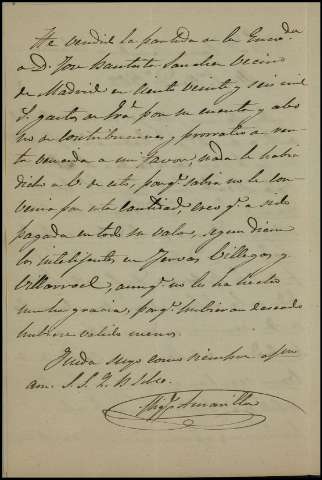 He vendido la partida de la Encoda
a D. José Bautista Sanchez vecino
de Madrid en ciento veinte y seis mil
gastos de por su cuenta y abo
no de contribuciones y prorrateo de ren
ta vencida a mi favor; nada le habia
dicho a V. de esto, porq.e sabia no le con
venia por esta cantidad, creo q.e a sido
pagada en todo su valor, segun dicen
los intelijentes en Jervas Villegas y
Villarroel, aunq.e no les ha hecho
mucha gracia, porq.e hubieran deseado
hubiese valido menos.
Queda suyo como siempre afmo
am. S. S. Q. B. S. M.